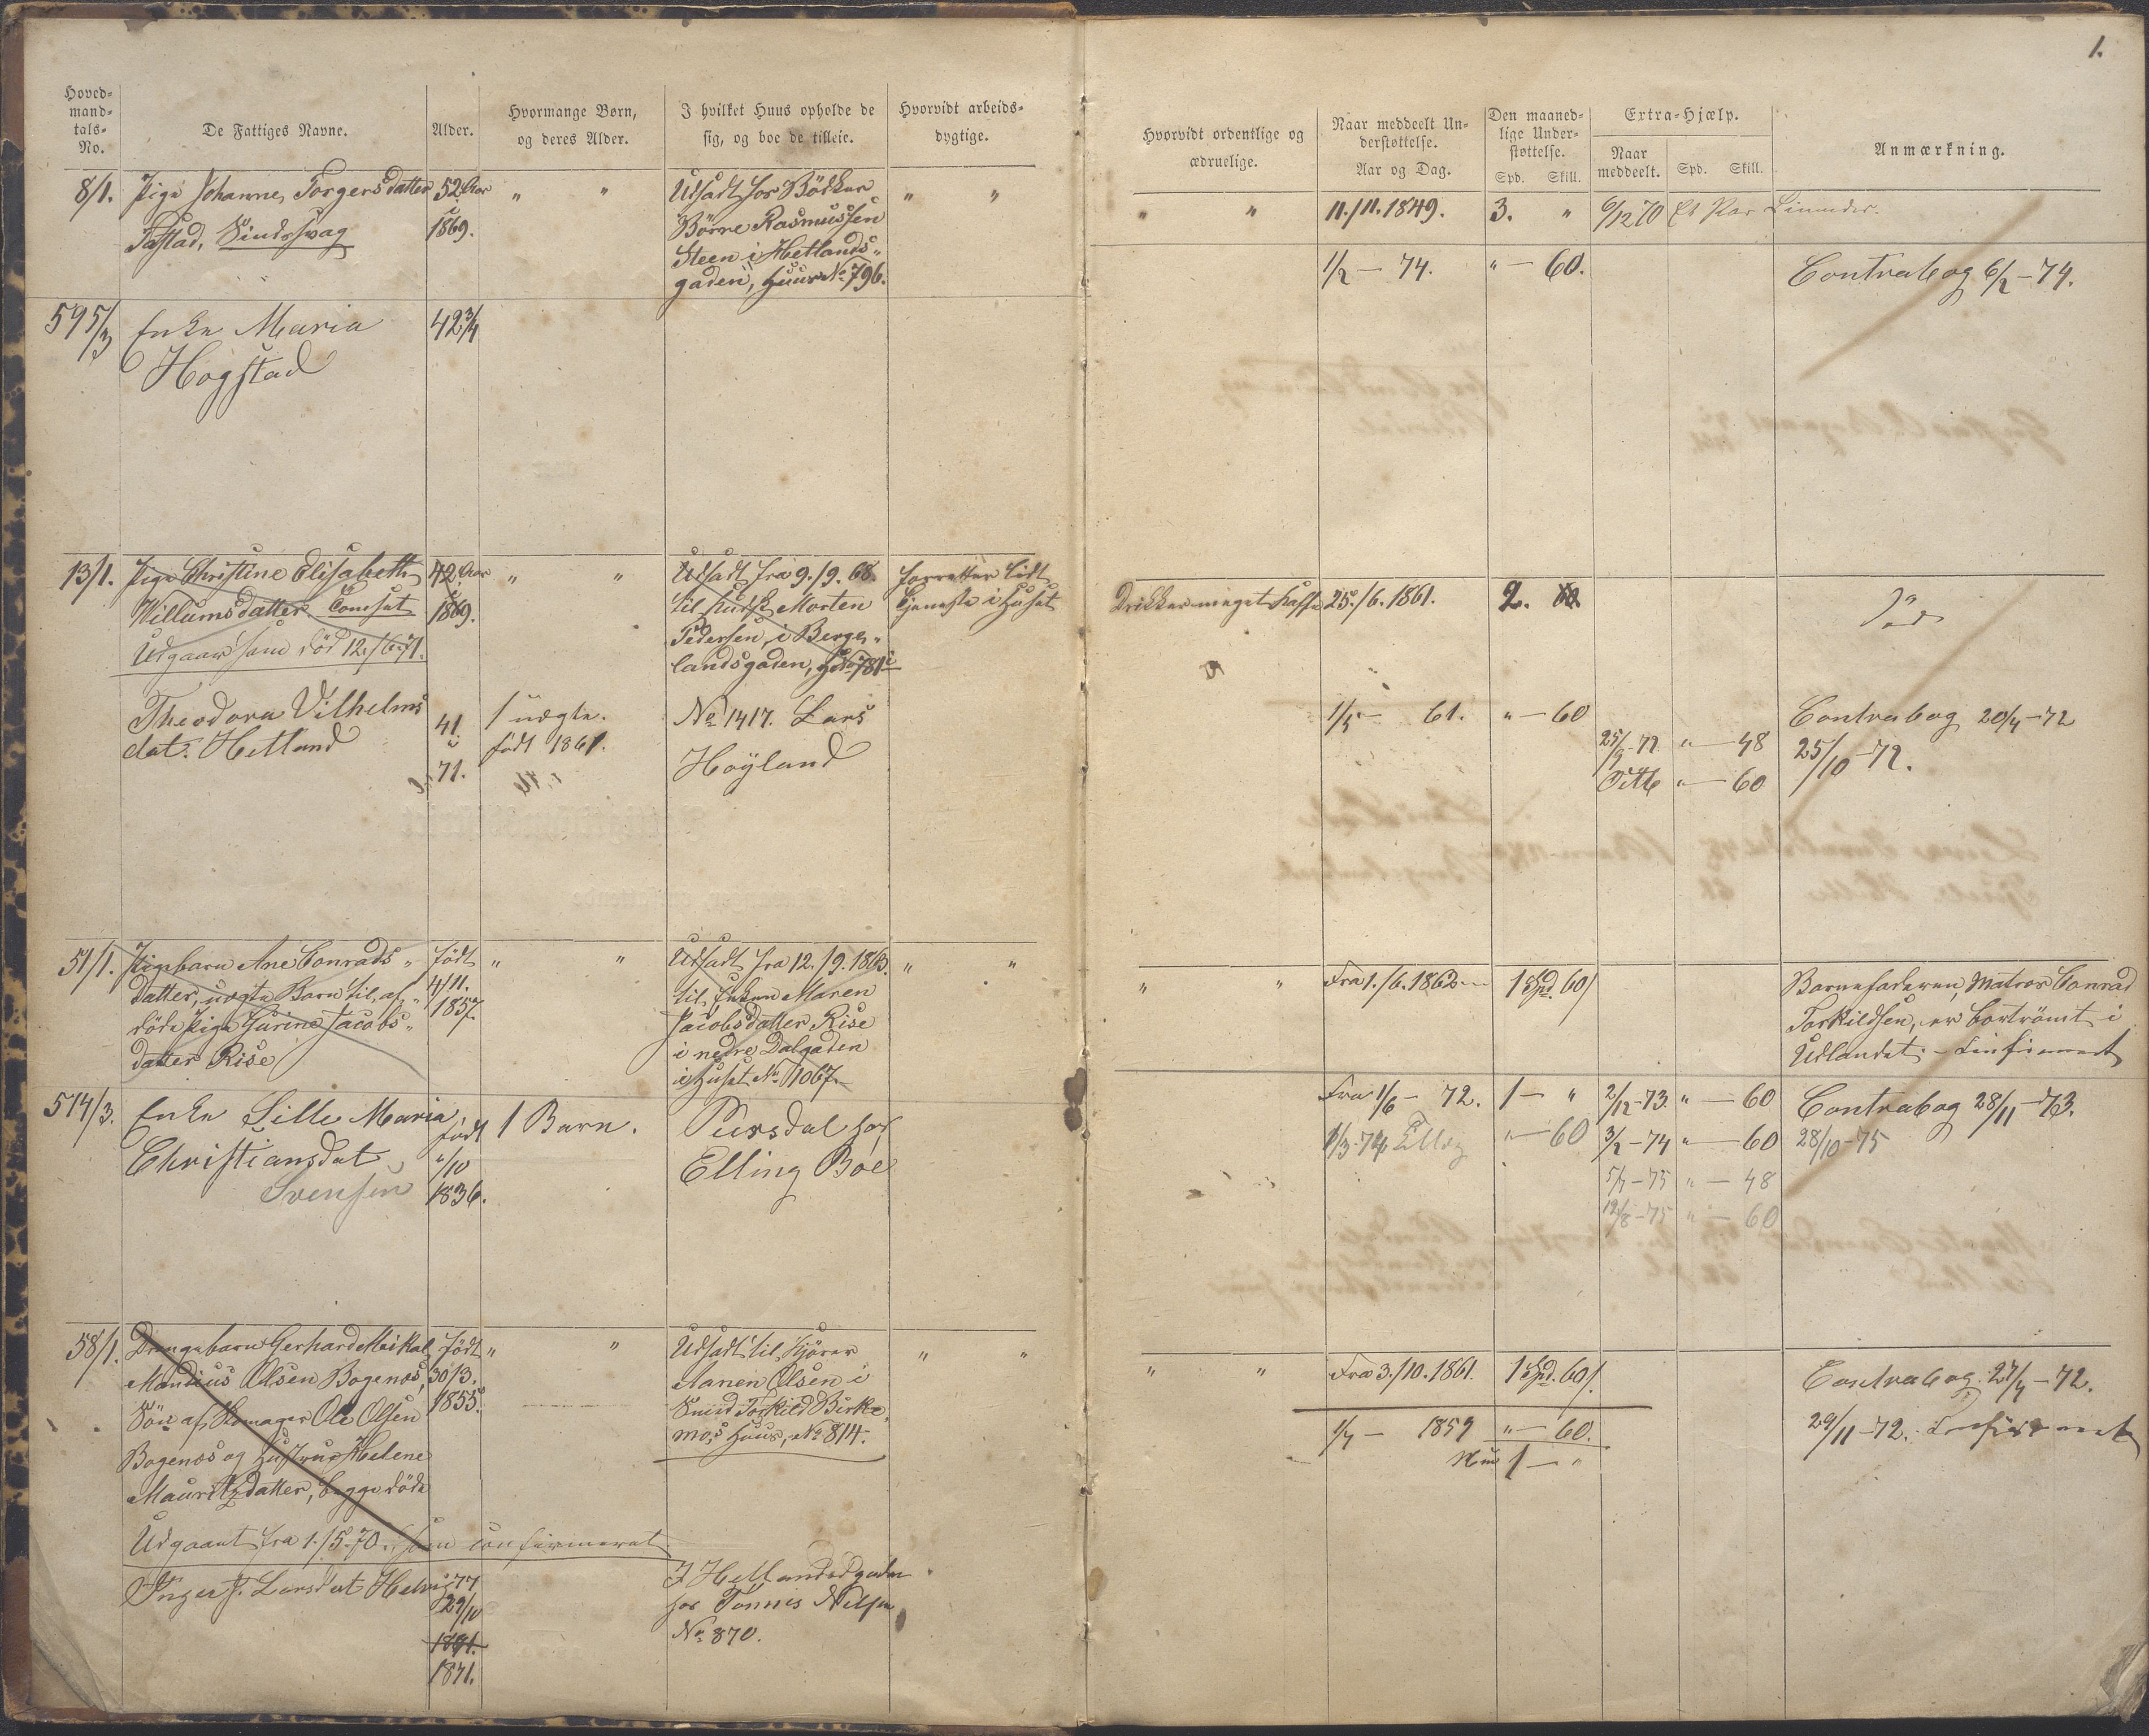 1.
Hoved-
mand-
tals-
No.
De Fattiges Navne.
Alder.
Hvormange Børn,
og deres Alder.
I hvilket Huus opholde de
sig, og boe de tilleie.
Hvorvidt arbeids-
dygtige.
Hvorvidt ordentlige og
ædruelige.
Naar meddeelt Un-
derstøttelse.
Aar og Dag.
Den maaned-
lige Under-
støttelse.
Spd. Skill.
Extra-Hjælp.
Naar
meddeelt.
Spd. Skill.
Anmærkning.
8/1.
Pige Johanne Torgersdatter
Tastad, Sindssvag
52 Aar
i
1869.
" "
Udsadt hos Bödker
Börre Rasmussen
Steen i Hetlands-
gaden, Huus No 796.
" "
" "
11./11. 1849.
3. "
6/12 70
Et Par
1/2 — 74.
" — 60.
Contrabog 6/2 — 74.
595/3
Enke Maria
Hogstad
42 3/4
13/1.
Pige Christine Elisabeth
Willumsdatter Tomset
Udgaar som död 12./6. 71.
42 Aar
i
1869.
" "
Udsadt fra 9./9. 68.
til Morten
Pedersen, i Berge-
landsgaden, No 781
forretter lidt
Tjeneste i Huset
Drikker meget Kaffe
25./6. 1861.
2.
Död
Theodora Vilhelms
dat. Hetland
41.
i
71.
1 uægte.
födt 1861.
No 1417. Lars
Høyland
1/5 — 61.
" — 60
25/9 - 72 " — 48
Ditto " — 60
Contrabog 20/4 - 72
25/10 - 72.
51/1.
Pigebarn Ane Conrads-
datter, uægte Barn til af-
döde Pige Gurine Jacobs-
datter Rise
födt
4/11.
1857.
" "
Udsadt fra 12./9. 1863.
til Enken Maren
Jacobsdatter Rise
i nedre Dalgaden
i Huset No 1067.
" "
" "
Fra 1./6. 1862
1 Spd. 60/
Barnefaderen, Matros Conrad
Torkildsen, er bortrömt i
Udlandet. - Confirmeret
514/3.
Enke Lille Maria
Christiansdat
Svensen
födt
"/10
1836.
1 Barn.
Puesdal hos
Elling Boe
Fra 1/6 - 72.
1 — "
2/12 - 73. " — 60
Contrabog 28/11 - 73.
1/3 - 74
" — 60
3/2 - 74 " — 60
28/10 - 75
5/7 - 75 " — 48
12/8 - 75 " — 60
58/1.
Drengebarn Gerhard Meikal
Mandius Olsen Bogenæs,
Sön af Skomager Ole Olsen
Bogenæs og Hustrue Helene
Mauritzdatter, begge döde
Udgaaet fra 1./5. 70. som confirmeret
födt
30/3.
1855.
" "
Udsadt til Kjörer
Aanen Olsen i
Smed Torkild Birke-
mo's Huus, No 814.
" "
" "
Fra 3./10. 1861.
1 Spd. 60/.
Contrabog 27/4 - 72.
1/7 — 1859 " — 60.
Nu 1 — "
29/11 - 72. Confirmeret
Inger T. Larsdat Helvig
77
29/10
1891.
1871.
I Hetlandsgaden
hos Tönnis Nilsen
No 870.